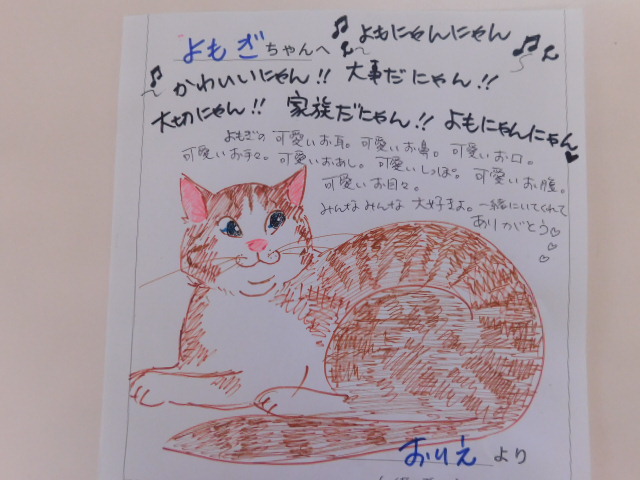 よもぎちゃんへ
よもにゃんにゃん
かわいいにゃん!! 大事だにゃん!!
大切にゃん!! 家族だにゃん!! よもにゃんにゃん
よもぎの可愛いお耳。可愛いお鼻。可愛いお口。
可愛いお手々。可愛いおあし。可愛いしっぽ。可愛いお腹。
可愛いお目々。
みんなみんな大好きよ。一緒にいてくれて
ありがとう♡
おりえより